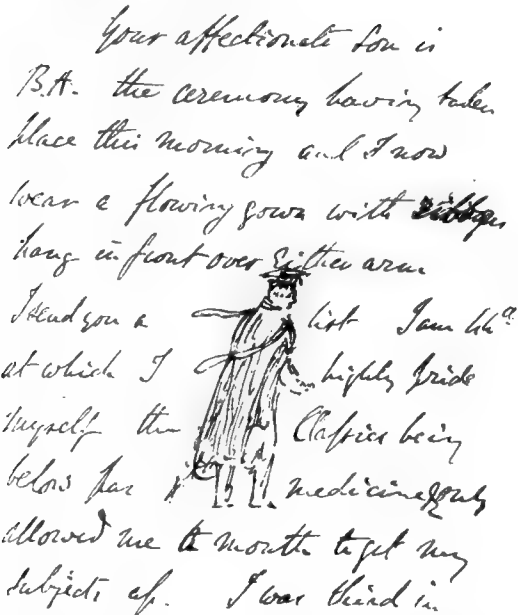 Your affectionate Son is
B.A. the ceremony having taken
place this morning and I now
wear a flowing gown with ribbons
hang in front over Either arm
I send you a list I am 4th
at which I highly pride
myself the Classics being
below par medicine only
allowed me a month to get my
subjects up. I was third in